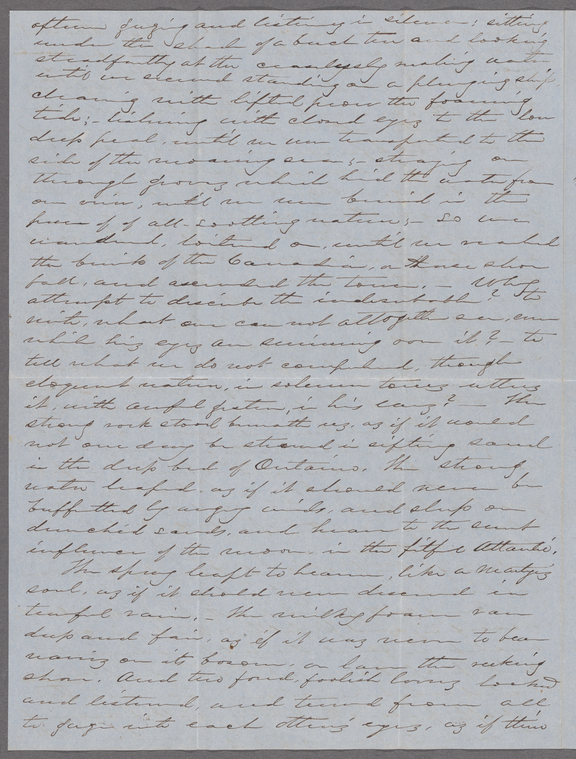 often gazing and listening in silence; sitting
under the shade of a beech tree and looking
steadfastly at the ceaselessly making water
until we seemed standing on a plunging ship
cleaving with lifted prow the foaming
tide; – listening with closed eyes to the low
deep peal, until we were transported to the
side of the moaning sea; – straying on
through groves which hid the water from
our view, until we were buried in the
of all-soothing nature; – so we
wandered, loitered on, until we reached
the brink of the Canadian, or Horse shoe
fall, and ascended the tower. – Why
attempt to describe the indescribable? to
write, what one can not altogether see, even
while his eyes are swimming over it? – to
tell what we do not comprehend, though
eloquent nature, in solemn tones utters
it, with awful , in his ears? – The
strong rock stood beneath us, as if it would
not one day be strewed in sifting sand
in the deep bed of Ontario. The strong
water leaped, as if it should never be
buffetted by angry winds, and sleep on
drenched sands, and hear to the secret
influence of the moon in the fitful Atlantic.
The spray leapt to heaven, like a Martyr's
soul, as if it should never descend in
tearful rain. – The milky foam ran
deep and fair, as if it was never to bear
navies on its bosom, or lave the reeking
shore. And two fond, foolish loving looked
and listened, and turned from all
to gaze into each other's eyes, as if their